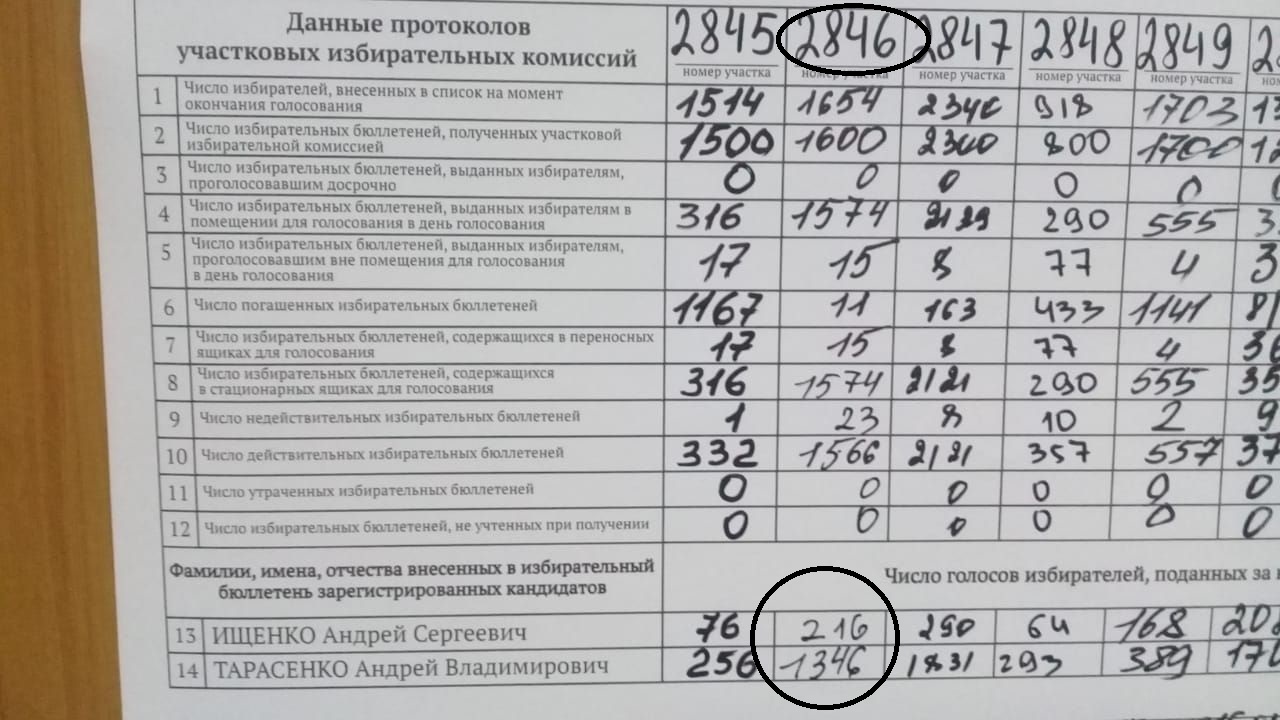 Данные протоколов
участковых избирательных комиссий
2845 2846 2847 2848 2849
номер участка номер участка номер участка номер участка номер участка
1 Число избирателей, внесенных в список на момент
окончания голосования 1514 1654 918 1703
2 Число избирательных бюллетеней, полученных участковой
избирательной комиссией 1500 1600 2300 800 1700
3 Число избирательных бюллетеней, выданных избирателям,
проголосовавшим досрочно 0 0 0 0 0
4 Число избирательных бюллетеней, выданных избирателям в
помещении для голосования в день голосования 316 1574 2129 290 555
5 Число избирательных бюллетеней, выданных избирателям,
проголосовавшим вне помещения для голосования
в день голосования 17 15 8 77 4
6 Число погашенных избирательных бюллетеней 1167 11 163 433 1141
7 Число избирательных бюллетеней, содержащихся в переносных
ящиках для голосования 17 15 8 77 4
8 Число избирательных бюллетеней, содержащихся
в стационарных ящиках для голосования 316 1574 2121 290 555
9 Число недействительных избирательных бюллетеней 1 23 8 10 2 9
10 Число действительных избирательных бюллетеней 332 1566 2121 357 557
11 Число утраченных избирательных бюллетеней 0 0 0 0 0 0
12 Число избирательных бюллетеней, не учтенных при получении 0 0 0 0 0 0
Фамилии, имена, отчества внесенных в избирательный
бюллетень зарегистрированных кандидатов
Число голосов избирателей, поданных за
13 ИЩЕНКО Андрей Сергеевич 76 216 290 64 168
14 ТАРАСЕНКО Андрей Владимирович 256 1346 1831 293 389